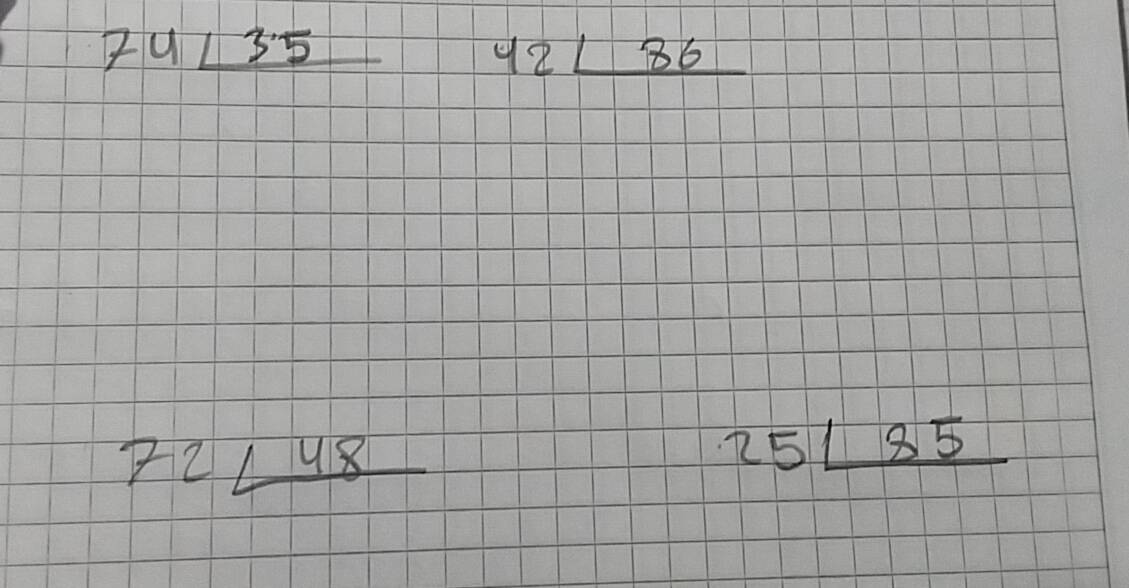 74 35 42 86
72 48 25 85